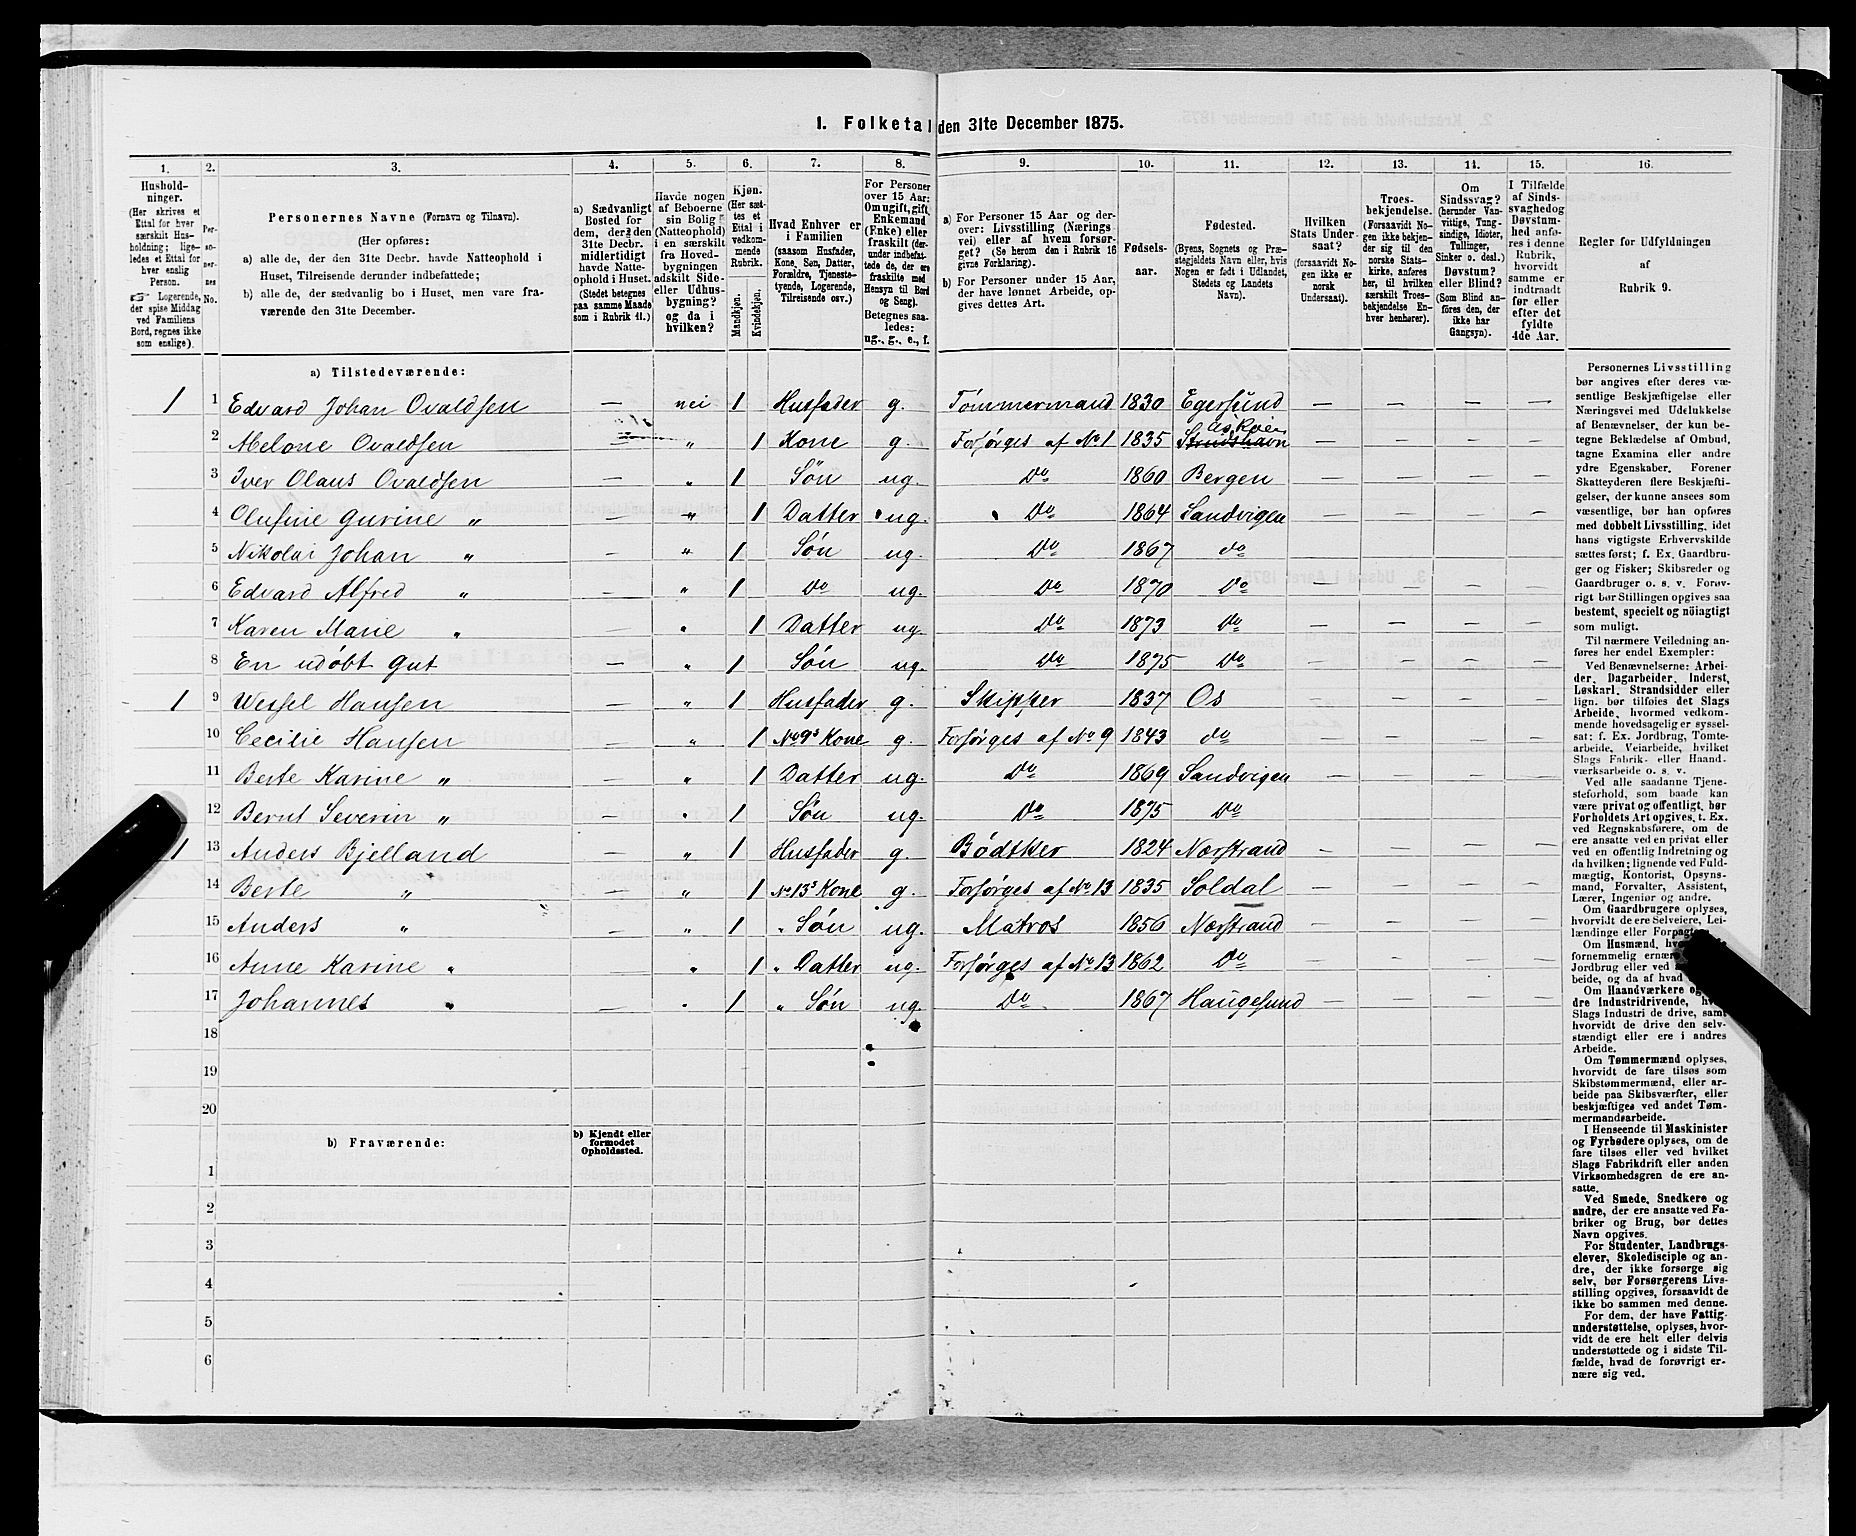 1. Folketal den 31te December 1875.
1. 2. 3. 4. 5. 6. 7. 8. 9. 10. 11. 12. 13. 14. 15. 16.
Husholdninger.
(Her skrives et
Ettal for hver
særskilt Husholdning; ligeledes et Ettal for
hver enslig
Person.
☞ Logerende,
der spise Middag
ved Familiens
Bord, regnes ikke
som enslige).
Personernes No.
Personernes Navne (Fornavn og Tilnavn).
(Her opføres:
a) alle de, der den 31te Decbr. havde Natteophold i
Huset, Tilreisende derunder indbefattede;
b) alle de, der sædvanlig bo i Huset, men vare fraværende den 31te December.
a) Sædvanligt
Bosted for
dem, der den
31te Decbr.
midlertidigt
havde Natteophold i Huset.
(Stedet betegnes
paa samme Maade
som i Rubrik 11.)
Havde nogen
af Beboerne
sin Bolig
(Natteophold)
i en særskilt
fra Hovedbygningen
adskilt Side-
eller Udhusbygning?
og da i
hvilken?
Kjøn.
(Her sættes et
Ettal i
vedkommende
Rubrik.
Mandkjøn.
Kvindekjøn.
Hvad Enhver er
i Familien
(saasom Husfader,
Kone, Søn, Datter,
Forældre, Tjenestetyende, Logerende,
Tilreisende osv.)
For Personer
over 15 Aar:
Om ugift, gift,
Enkemand
(Enke) eller
fraskilt (derunder indbefattede de, der ere
fraskilte med
Hensyn til Bord
og Seng).
Betegnes saaledes:
ug., g., e., f.
a) For Personer 15 Aar og derover: Livsstilling (Næringsvei) eller af hvem forsørget? (Se herom den i Rubrik 16
givne Forklaring).
b) For Personer under 15 Aar,
der have lønnet Arbeide, opgives dettes Art.
Fødselsaar.
Fødested.
(Byens, Sognets og Præstegjeldets Navn eller, hvis
Nogen er født i Udlandet,
Stedets og Landets
Navn).
Hvilken
Stats Undersaat?
(forsaavidt Nogen ikke er
norsk
Undersaat).
Troesbekjendelse.
(Forsaavidt Nogen ikke bekjender sig til den
norske Statskirke, anføres
her, til hvilken
særskilt Troesbekjendelse Enhver henhører).
Om
Sindssvag?
(herunder Vanvittige, Tungsindige, Idioter,
Tullinger,
Sinker o. desl.)
Døvstum?
eller Blind?
(Som Blind anføres den, der
ikke har
Gangsyn).
I Tilfælde
af Sindssvaghed og
Døvstumhed anføres i denne
Rubrik,
hvorvidt
samme er
indtraadt
før eller
efter det
fyldte
4de Aar.
Regler for Udfyldningen
af
Rubrik 9.
a) Tilstedeværende:
1 1 Edvard Johan Ovaldsen — nei 1 Husfader g. Tömmermand 1830 Egersund — — — —
2 Melone Ovaldsen " 1 Kone g. Forsørges af No 1 1835 Strudshavn Askøen — — — —
3 Iver Olaus Ovaldsen — " 1 Søn ug. Do 1860 Bergen — — — —
4 Olufine Gurine " — " 1 Datter ug. Do 1864 Sandvigen — — — —
5 Nikolai Johan " — " 1 Søn ug. Do 1867 do — — — —
6 Edvard Alfred " — " 1 Do ug. Do 1870 Do — — — —
7 Karen Marie " — " 1 Datter ug. Do 1873 Do — — — —
8 En udöbt Gut — " 1 Søn ug. Do 1875 Do — — — —
1 9 Wessel Hansen — " 1 Husfader g. Skipper 1837 Os — — — —
10 Cecilie Hansen — " 1 No 9s Kone g. Forsørges af No 9 1843 do — — — —
11 Berte Karine " — " 1 Datter ug. Do 1869 Sandvigen — — — —
12 Bernt Severin " — " 1 Søn ug. Do 1875 Do — — — —
1 13 Anders Bjelland — " 1 Husfader g. Bødtker 1824 Nærstrand — — — —
14 Berte " — " 1 No 13s Kone g. Forsørges af No 13 1835 Soldal — — — —
15 Anders " — " 1 " Søn ug. Matros 1856 Nærstrand — — — —
16 Anne Karine " — " 1 " Datter ug. Forsørges af No 13 1862 Do — — — —
17 Johannes " — " 1 " Søn ug. Do 1867 Haugesund — — — —
18
19
20
b) Fraværende:
b) Kjendt eller
formodet
Opholdssted.
1
2
3
4
5
6
Personernes Livsstilling
bør angives efter deres væsentlige Beskjæftigelse eller
Næringsvei med Udelukkelse
af Benævnelser, der kun betegne Beklædelse af Ombud,
tagne Examina eller andre
ydre Egenskaber. Forener
Skatteyderen flere Beskjæftigelser, der kunne ansees som
væsentlige, bør han opføres
med dobbelt Livsstilling, idet
hans vigtigste Erhvervskilde
sættes først; f. Ex. Gaardbruger og Fisker; Skibsreder og
Gaardbruger o. s. v. Forøvrigt bør Stillingen opgives saa
bestemt, specielt og nöiagtigt
som muligt.
Til nærmere Veiledning anføres her endel Exempler:
Ved Benævnelserne: Arbeider, Dagarbeider, Inderst,
Løskarl, Strandsidder eller
lign. bør tilføies det Slags
Arbeide, hvormed vedkommende hovedsagelig er sysselsat: f. Ex. Jordbrug, Tomtearbeide, Veiarbeide, hvilket
Slags Fabrik- eller Haandværksarbeide o. s. v.
Ved alle saadanne Tjenesteforhold, som baade kan
være privat og offentligt, bør
Forholdets Art opgives, t. Ex.
ved Regnskabsførere, om de
ere ansatte ved en privat eller
ved en offentlig Indretning og
da hvilken; lignende ved Fuldmægtig, Kontorist, Opsynsmand, Forvalter, Assistent,
Lærer, Ingeniør og andre.
Om Gaardbrugere oplyses,
hvorvidt de ere Selveiere, Leilændinge eller
Om Husmænd,
fornemmelig
Jordbrug eller ved
beide, og da af hvad
Om Haandværkere
dre Industridrivende,
Slags Industri de drive, samt
hvorvidt de drive den selvstændigt eller ere i andres
Arbeide.
Om Tømmermænd oplyses,
hvorvidt de fare tilsøs som
Skibstømmermænd, eller arbeide paa Skibsværfter, eller
beskjæftiges ved andet Tømmermandsarbeide.
I Henseende til Maskinister
og Fyrbødere oplyses, om de
fare tilsøs eller ved hvilket
Slags Fabrikdrift eller anden
Virksomhedsgren de ere ansatte.
Ved Smede, Snedkere og
andre, der ere ansatte ved Fabriker og Brug, bør dettes
Navn opgives.
For Studenter, Landbrugselever, Skoledisciple og andre, der ikke forsørge sig
selv, bør Forsørgerens Livsstilling opgives, forsaavidt de
ikke bo sammen med denne.
For dem, der have Fattigunderstøttelse, oplyses, hvorvidt de ere helt eller delvis
understøttede og i sidste Tilfælde, hvad de forøvrigt ernære sig ved.